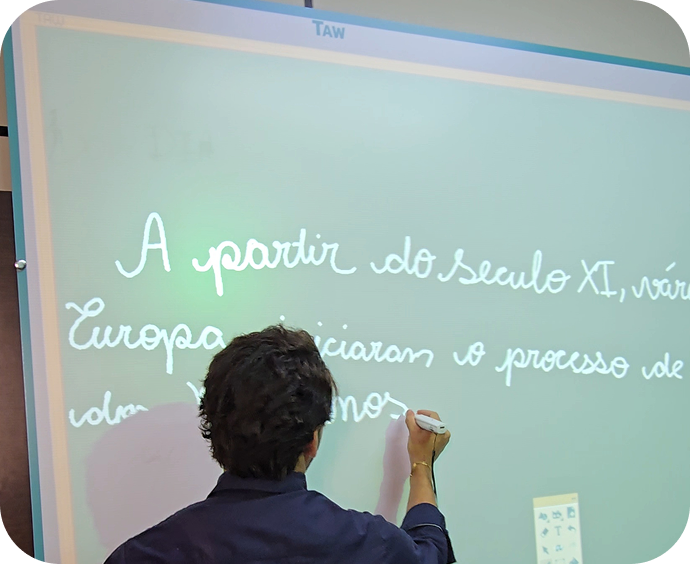 TAW
A partir do seculo XI,
Europa iniciaram o processo de